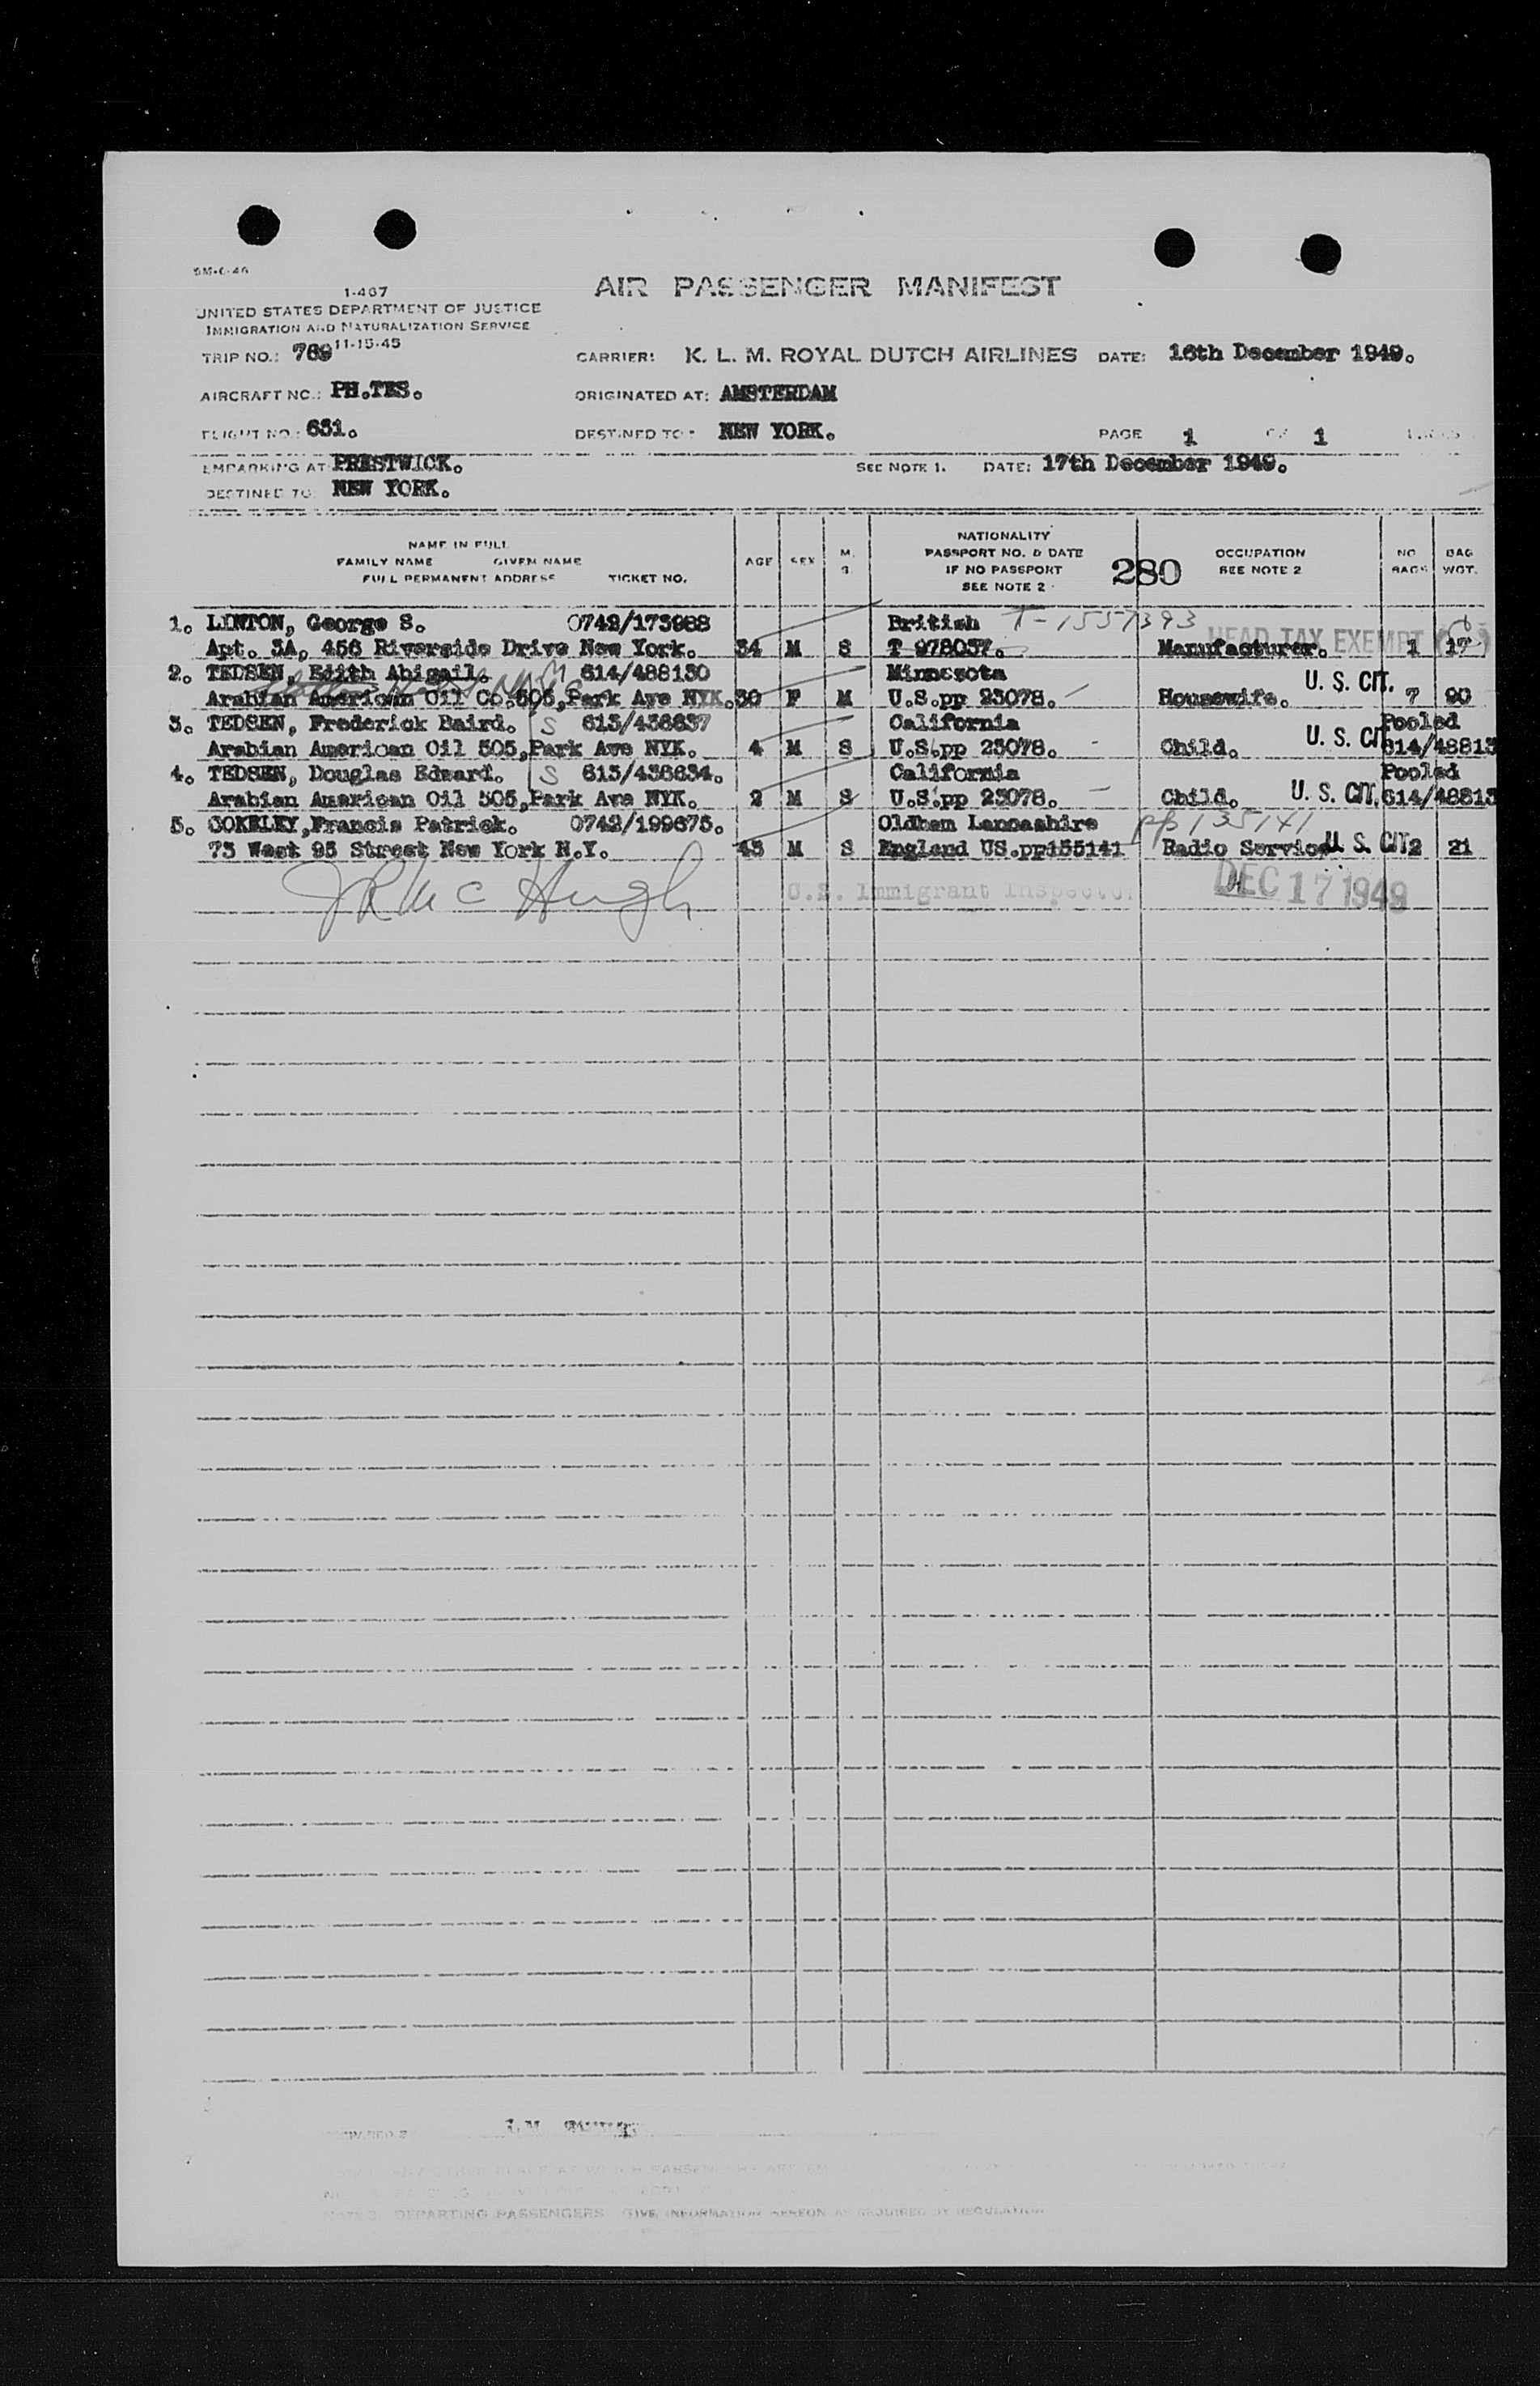 5M-6-46
1-467
UNITED STATES DEPARTMENT OF JUSTICE
IMMIGRATION AND NATURALIZATION SERVICE
11-15-45
AIR PASSENGER MANIFEST
TRIP NO.: 769 CARRIER: K. L. M. ROYAL DUTCH AIRLINES DATE: 16th December 1949.
AIRCRAFT NO.: PH.TES. ORIGINATED AT: AMSTERDAM
FLIGHT NO.: 631. DESTINED TO: NEW YORK. PAGE 1 OF 1
EMBARKING AT PRESTWICK. SEE NOTE 1. DATE: 17th December 1949.
DESTINED TO: NEW YORK.
NAME IN FULL
FAMILY NAME GIVEN NAME
FULL PERMANENT ADDRESS TICKET NO.
AGE SEX M. S.
NATIONALITY
PASSPORT NO. & DATE
IF NO PASSPORT
SEE NOTE 2
280
OCCUPATION
SEE NOTE 2
NO BAGS
BAG WGT.
1. LINTON, George S. 0742/173988 British T-1557393
HEAD TAX EXEMPT
Apt. 3A, 456 Riverside Drive New York. 34 M S T 978037. Manufacturer. 1 17
2. TEDSEN, Edith Abigail. M 614/488130 Minnesota U. S. CIT.
Arabian American Oil Co.505,Park Ave NYK. 30 F M U.S.pp 23078. Housewife. 7 90
3. TEDSEN, Frederick Baird. S 613/438637 California U. S. CIT Pooled
Arabian American Oil 505,Park Ave NYK. 4 M S U.S.pp 23078. Child. 614/48813
4. TEDSEN, Douglas Edward. S 613/438634. California Pooled
Arabian American Oil 505,Park Ave NYK. 2 M S U.S.pp 23078. Child. U. S. CIT. 614/48813
5. COKELEY,Francis Patrick. 0742/199675. Oldham Lancashire pp 135141
73 West 95 Street New York N.Y. 43 M S England US.pp135141 Radio Service U. S. CIT 2 21
J R McHugh U.S. Immigrant Inspector DEC 17 1949
NOTE 2. DEPARTING PASSENGERS GIVE INFORMATION HEREON AS REQUIRED BY REGULATION